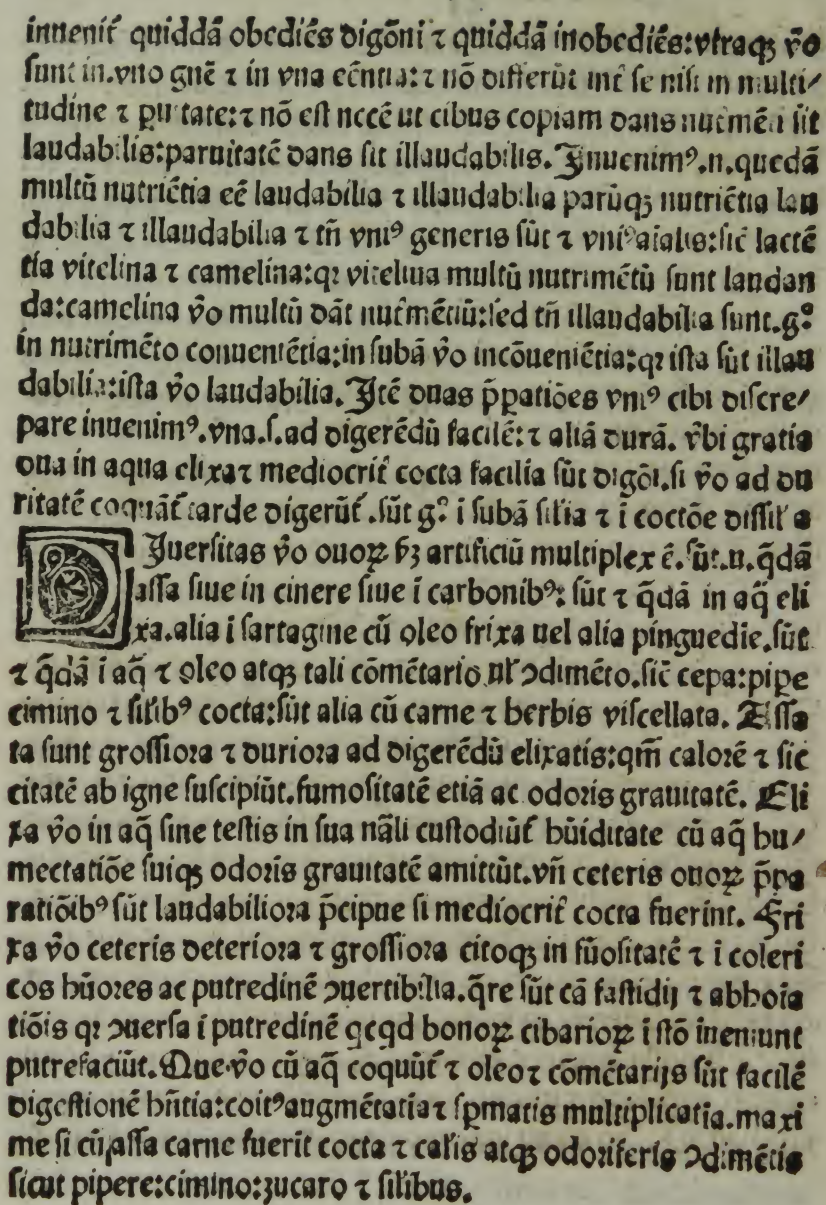 inuenit̃ quiddã obediẽs digõni ⁊ quiddã inobediẽs:vtraqꝫ ṽo
sunt in.vno gñe ⁊ in vna eẽntia:⁊ nõ differũt int̃ se nisi in multi⸗
tudine ⁊ puitate:⁊ nõ est nccẽ ut cibus copiam dans nut̃mẽti sit
laudabilis:paruitatẽ dans sit illaudabilis. Inuenimꝰ.n.quedã
multũ nutriẽtia eẽ laudabilia ⁊ illaudabilia parũqꝫ nutriẽtia lau
dabilia ⁊ illaudabilia ⁊ tñ vniꝰ generis sũt ⁊ vniꝰ aĩalis:sic̃ lactẽ
tia vitelina ⁊ camelina:qꝛ vitelina multũ nutrimẽtũ sunt laudan
da:camelina ṽo multũ dãt nut̃mẽtũ:sed tñ illaudabilia sunt.gͦ
in nutrimẽto conueniẽtia:in subã ṽo incõueniẽtia:qꝛ ista sũt illau
dabilia:ista ṽo laudabilia. Itẽ duas p̃patiões vniꝰ cibi discre⸗
pare inuenimꝰ.vna.s.ad digerẽdũ facilẽ:⁊ aliã durã. v̓bi gratia
oua in aqua elixa⁊ mediocrit̃ cocta facilia sũt digõi.si ṽo ad du
ritatẽ coquãt̃ tarde digerũt̃.sũt gͦ ĩ subã sĩlia ⁊ ĩ coctõe dissĩla
DIuersitas ṽo ouoꝝ ẞm artificiũ multiplex ẽ.sũt.n.q̃dã
assa siue in cinere siue ĩ carbonibꝰ: sũt ⁊ q̃dã in aq̃ eli
xa.alia ĩ sartagine cũ oleo frixa uel alia pinguedie.sũt
⁊ q̃dã ĩ aq̃ ⁊ oleo atqꝫ tali cõmẽtario ul̓ ↄdimẽto.sic̃ cepa:pipe
cimino ⁊ sĩlibꝰ cocta:sũt alia cũ carne ⁊ herbis viscellata. Assa
ta sunt grossiora ⁊ duriora ad digerẽdũ elixatis:qm̃ calorẽ ⁊ sic
citatẽ ab igne suscipiũt.fumositatẽ etiã ac odoris grauitatẽ. Eli
xa ṽo in aq̃ sine testis in sua nãli custodiũt̃ hũiditate cũ aq̃ hu⸗
mectatiõe suiqꝫ odoris grauitatẽ amittũt.vñ ceteris ouoꝝ p̃pa
ratiõibꝰ sũt laudabiliora p̃cipue si mediocrit̃ cocta fuerint. Fri
xa ṽo ceteris deteriora ⁊ grossiora citoqꝫ in fũositatẽ ⁊ ĩ coleri
cos hũores ac putredinẽ ↄuertibilia.q̃re sũt cã fastidij ⁊ abhoĩa
tiõis qꝛ ↄuersa ĩ putredinẽ qcqd bonoꝝ cibarioꝝ ĩ stõ ĩueniunt
putrefaciũt. Que ṽo cũ aq̃ coquũt̃ ⁊ oleo⁊ cõmẽtarijs sũt facilẽ
digestionẽ hñtia:coitꝰ augmẽtatia⁊ spmatis multiplicatĩa.maxi
me si cũ assa carne fuerit cocta ⁊ calis atqꝫ odoriferis ↄdimẽtis
sicut pipere:cimino:zucaro ⁊ sĩlibus.